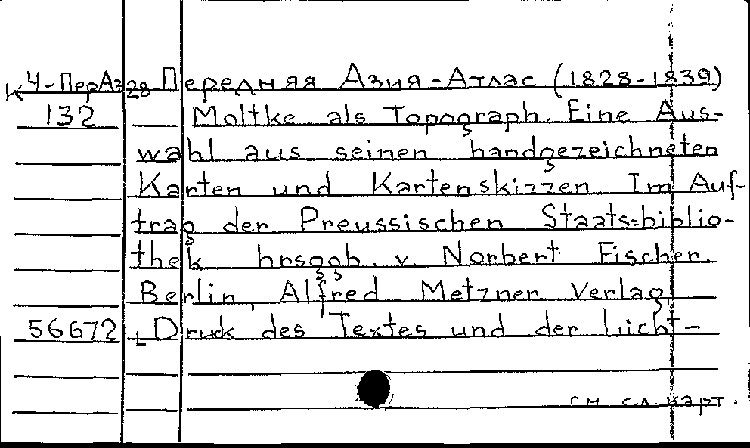 К 4-ПерАз28 Передняя Азия-Атлас (1828-1839)
132 Moltke als Topograph. Eine Aus-
wahl aus seinen handgezeichneten
Karten und Kartenskizzen Im Auf-
trag der Preussischen Staats-biblio-
thek hrsggb. v Norbert Fischer.
Berlin, Alfred Metzner Verlag
56672 Druck des Textes und der Licht-
см сл карт.